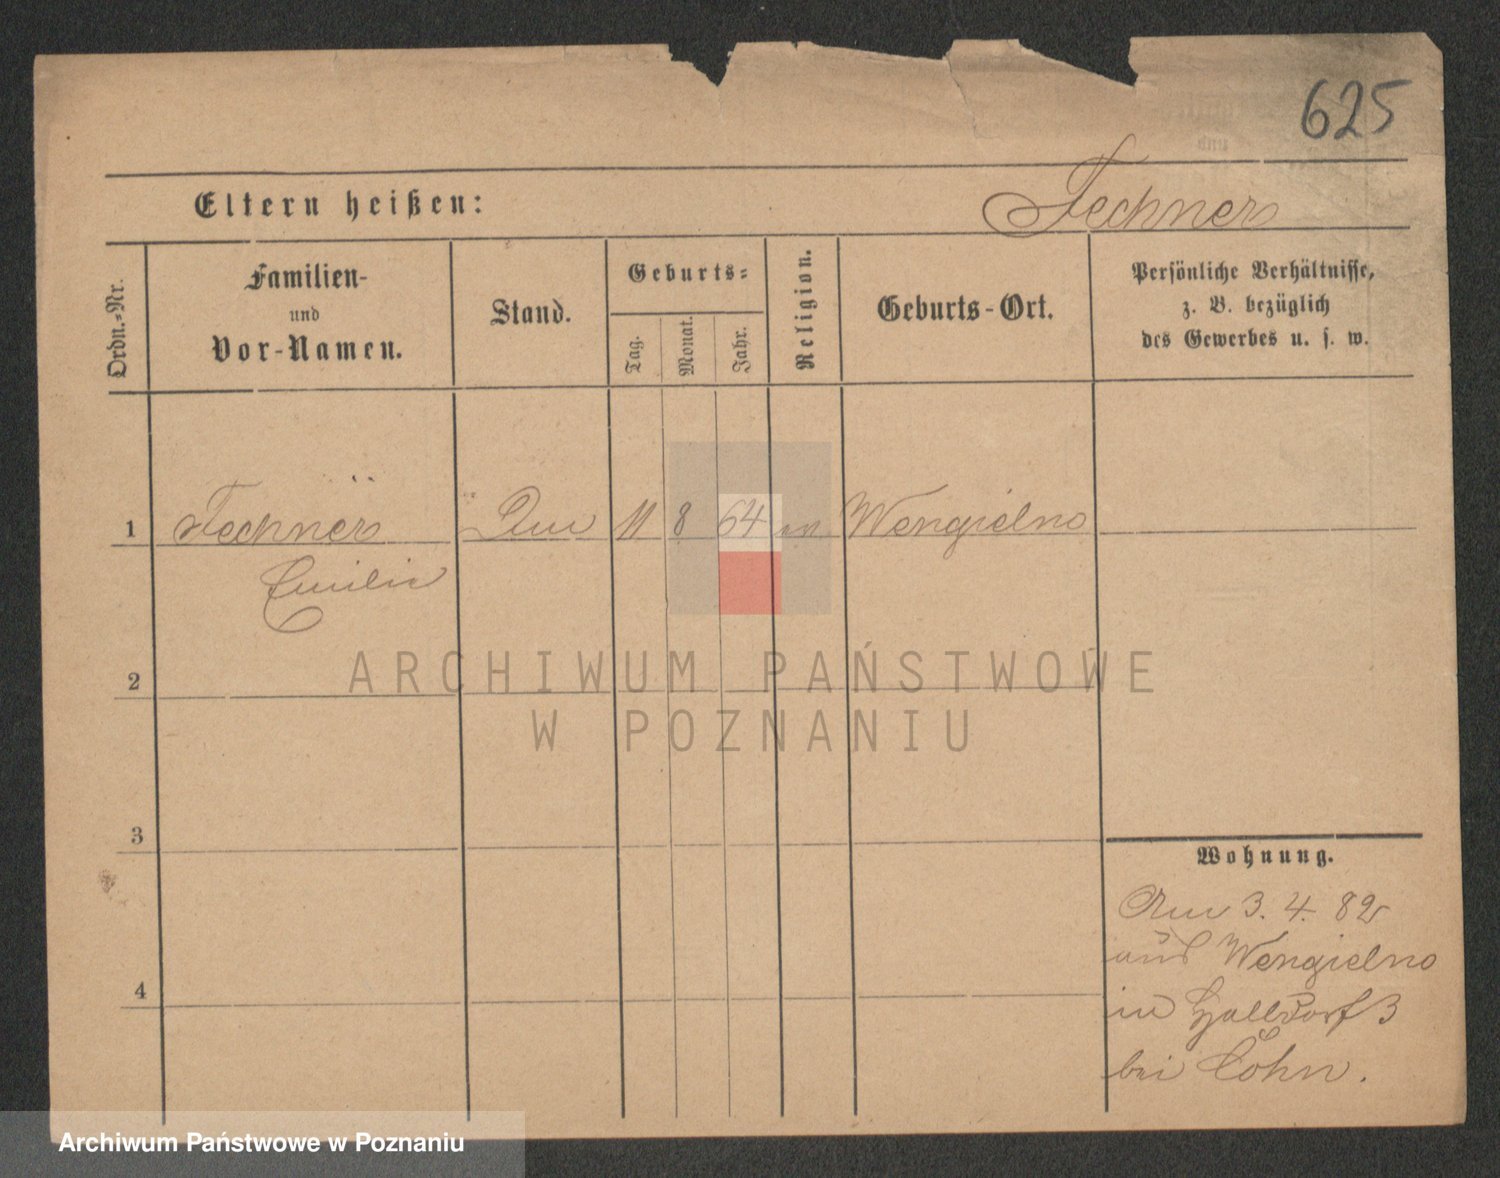 625
Eltern heißen: Fechner
Ordn.-Nr.
Familien-
und
Vor-Namen.
Stand.
Geburts-
Tag.
Monat.
Jahr.
Religion.
Geburts-Ort.
Persönliche Verhältnisse,
z. B. bezüglich
des Gewerbes u. s. w.
1 Fechner 11 8 64 Wengielno
Emilie
2
3
4
Wohnung.
Am 3. 4. 82
aus Wengielno
in 3
bei Cohn.
ARCHIWUM PAŃSTWOWE
W POZNANIU
Archiwum Państwowe w Poznaniu